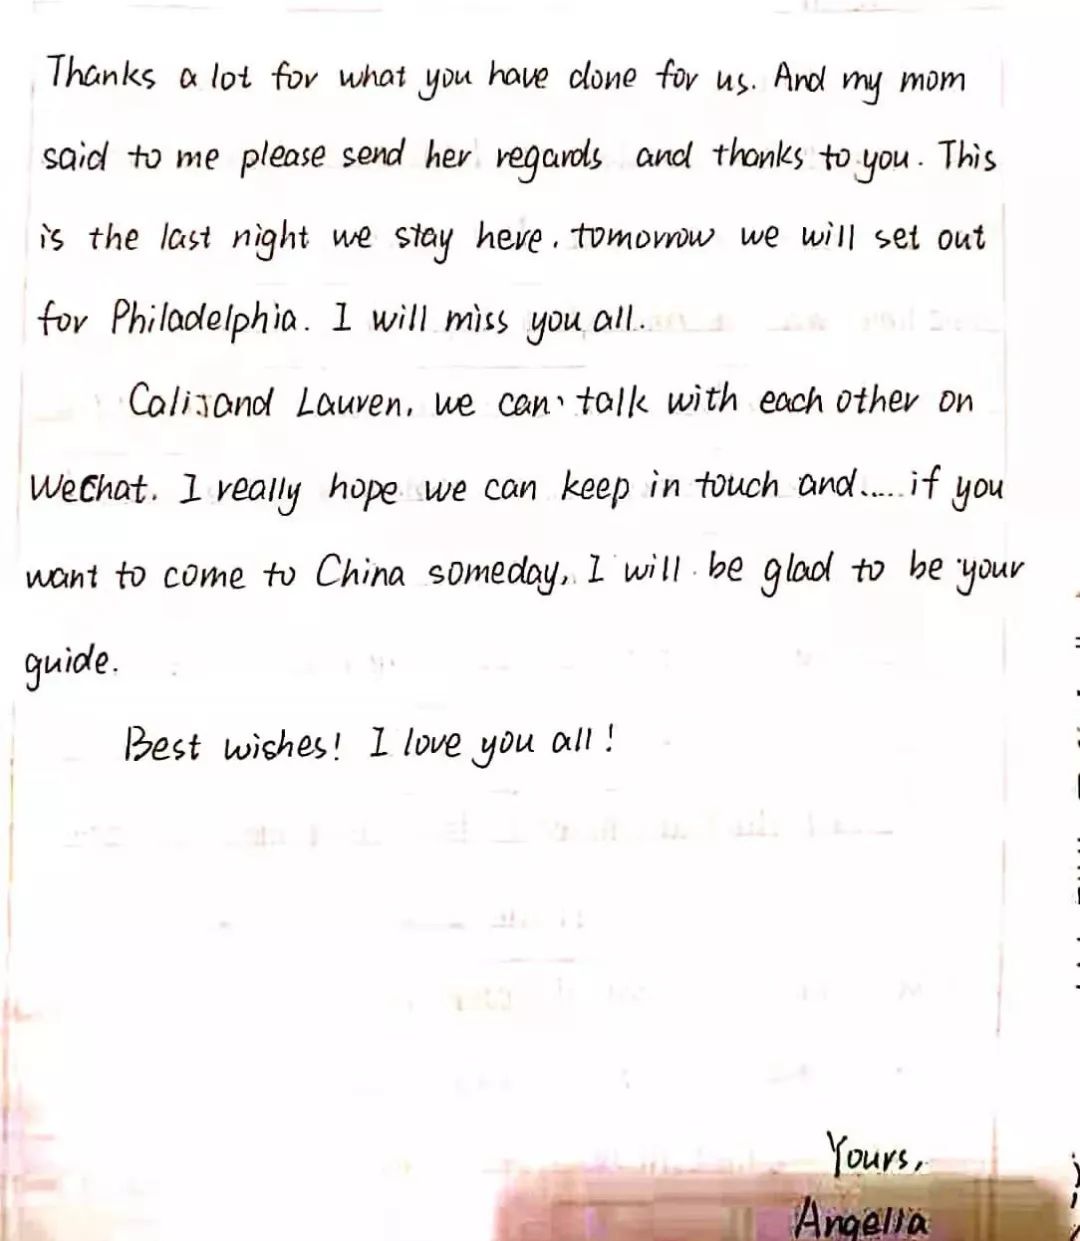 Thanks a lot for what you have done for us. And my mom
said to me please send her regards and thanks to you. This
is the last night we stay here. tomorrow we will set out
for Philadelphia. I will miss you all.
and Lauren, we can talk with each other on
WeChat. I really hope we can keep in touch and..... if you
want to come to China someday, I will be glad to be your
guide.
Best wishes! I love you all!
Yours,
Angelia